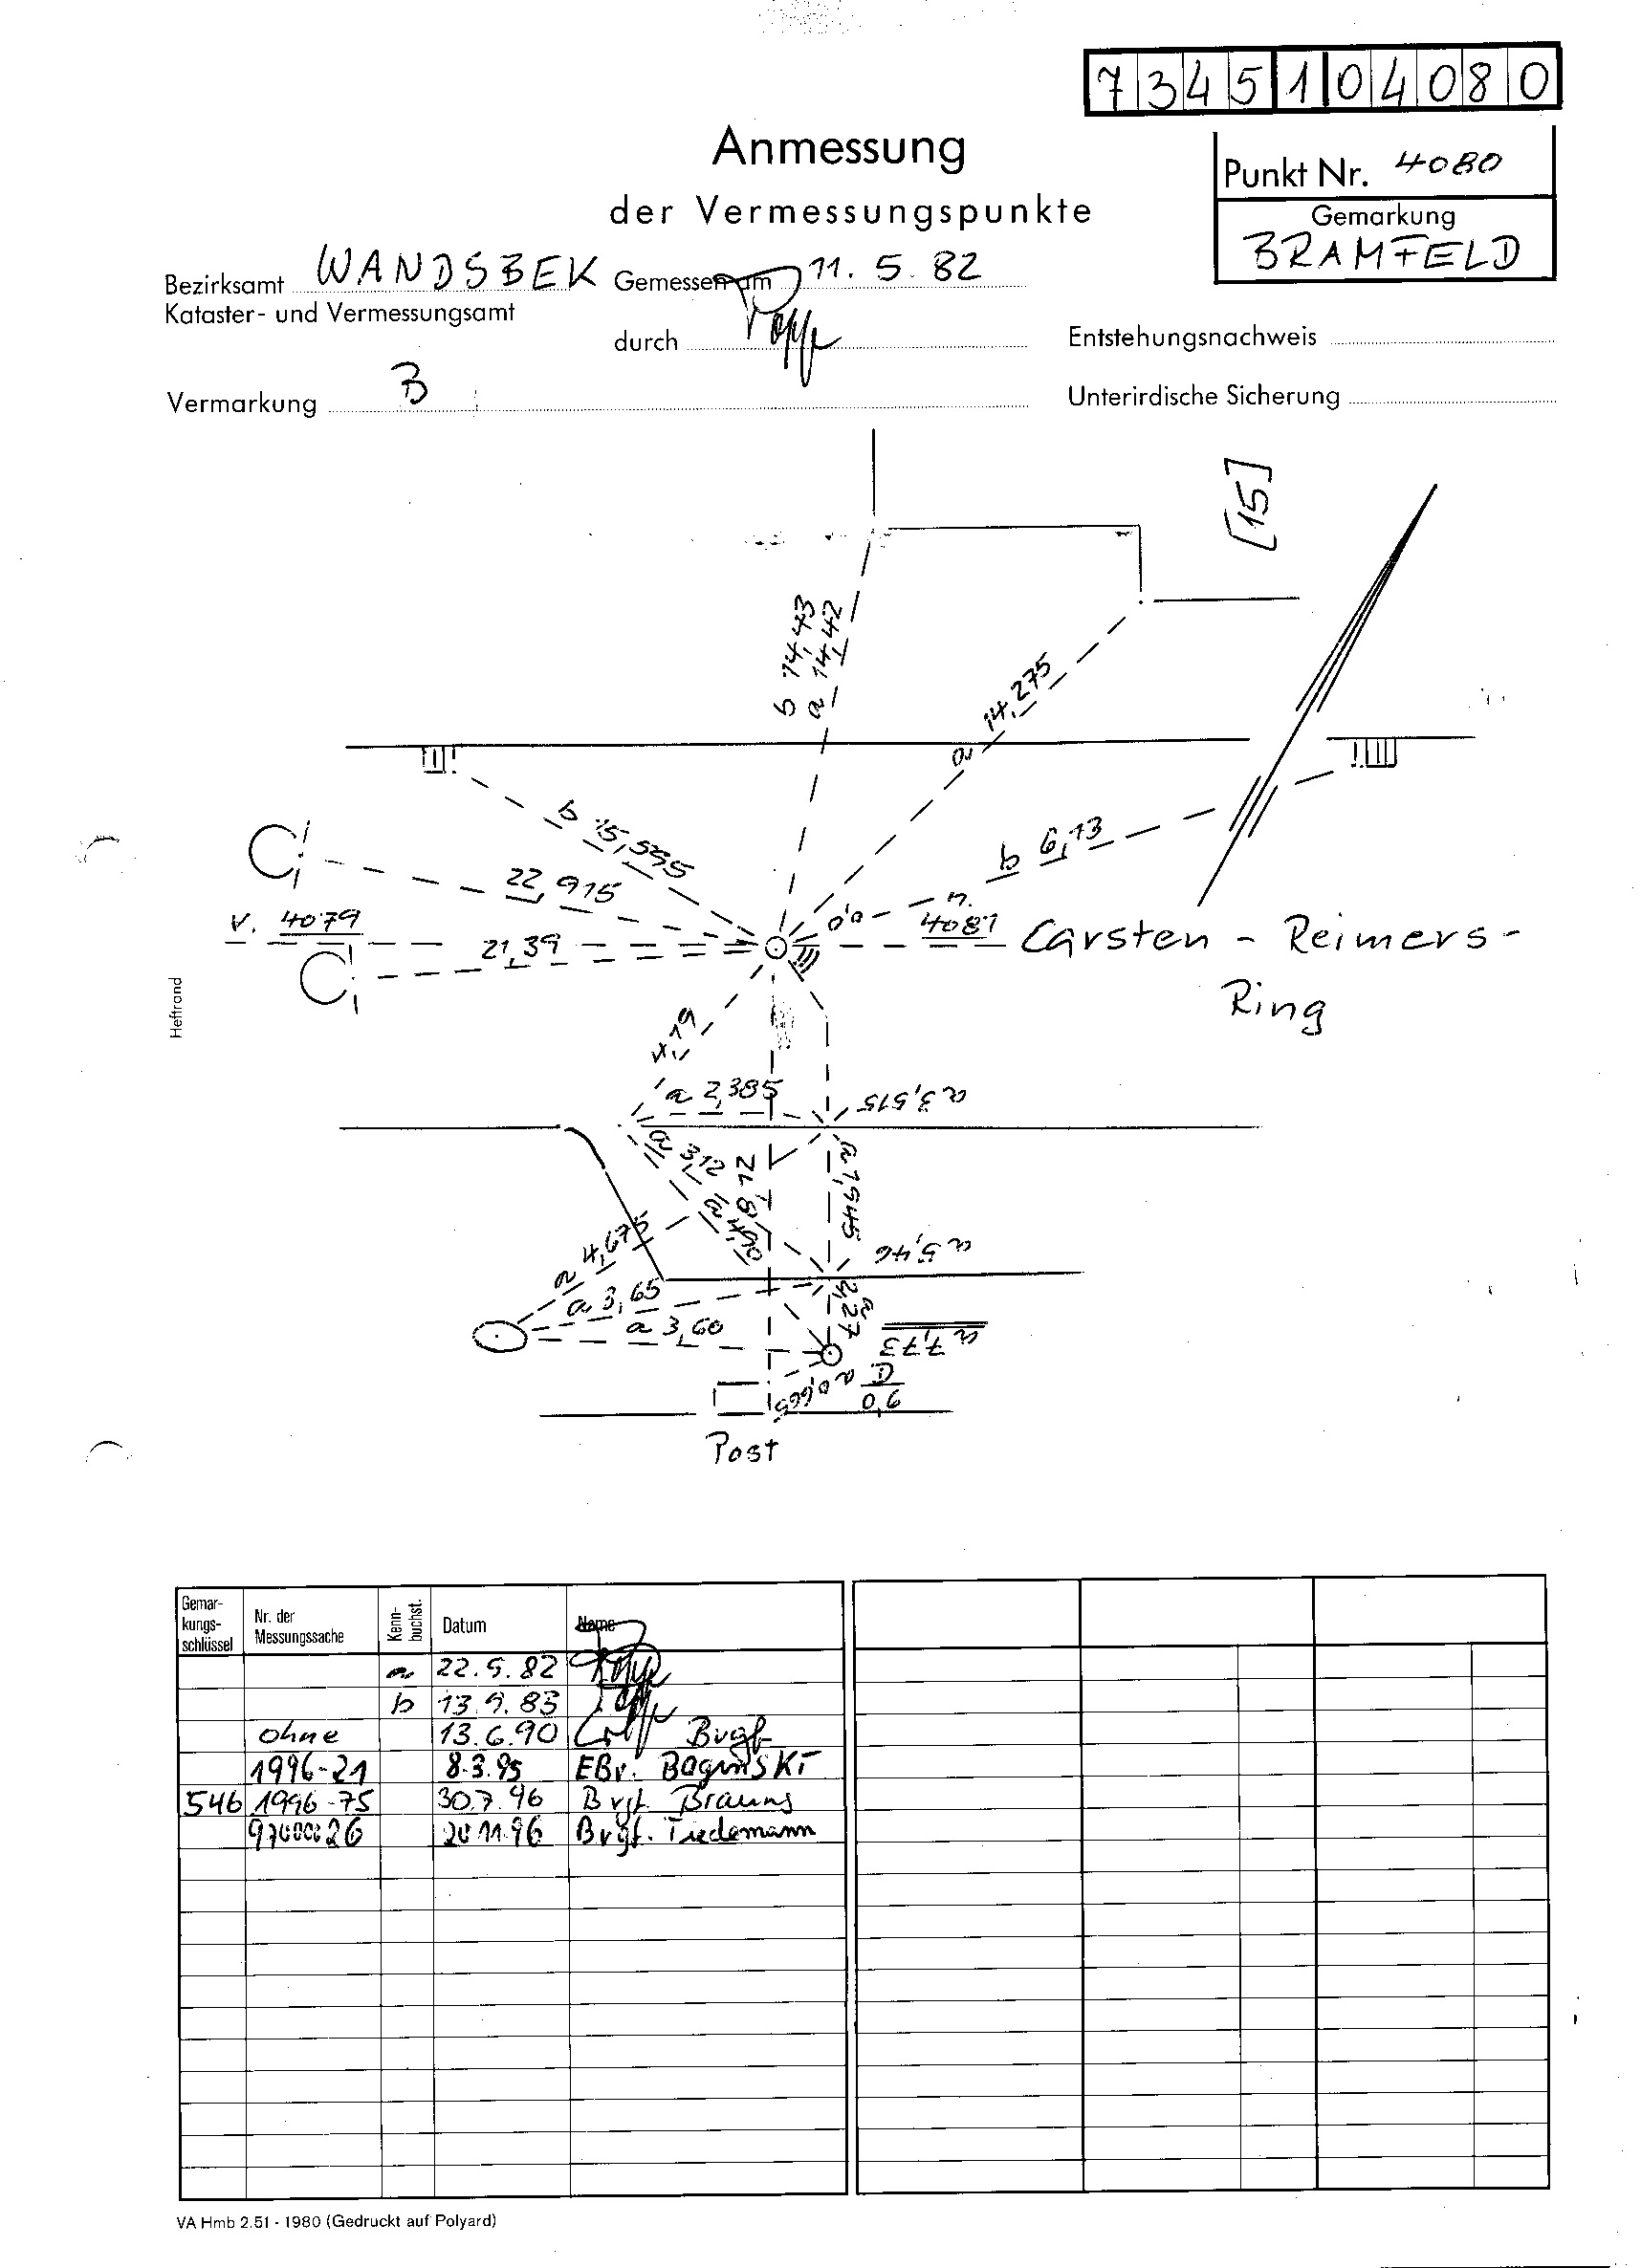 7345104080
Anmessung
der Vermessungspunkte
Punkt Nr. 4080
Gemarkung
BRAMFELD
Bezirksamt WANDSBEK Gemessen am 11. 5. 82
Kataster- und Vermessungsamt
durch
Entstehungsnachweis
Vermarkung B
Unterirdische Sicherung
[15]
b 14,43
a 14,42
a 14,275
b 15,535
b 6,13
22,915
v. 4079
n. 4081
21,39
Carsten - Reimers-
Ring
Heftrand
4,19
a 2,385
a 3,515
a 3,12
a 1,945
a 4,675
a 5,46
a 3,65
a 2,27
a 3,60
a 7,73
a 0,665
D
0,6
Post
Gemar-
kungs-
schlüssel
Nr. der
Messungssache
Kenn-
buchst.
Datum
Name
a 22.5.82
b 13.9.83
ohne 13.6.90 Bvgt
1996-21 8.3.95 EBr. Baginski
546 1996-75 30.7.96 Bvgt. Brauns
20.11.96 Bvgt. Tiedemann
VA Hmb 2.51 - 1980 (Gedruckt auf Polyard)